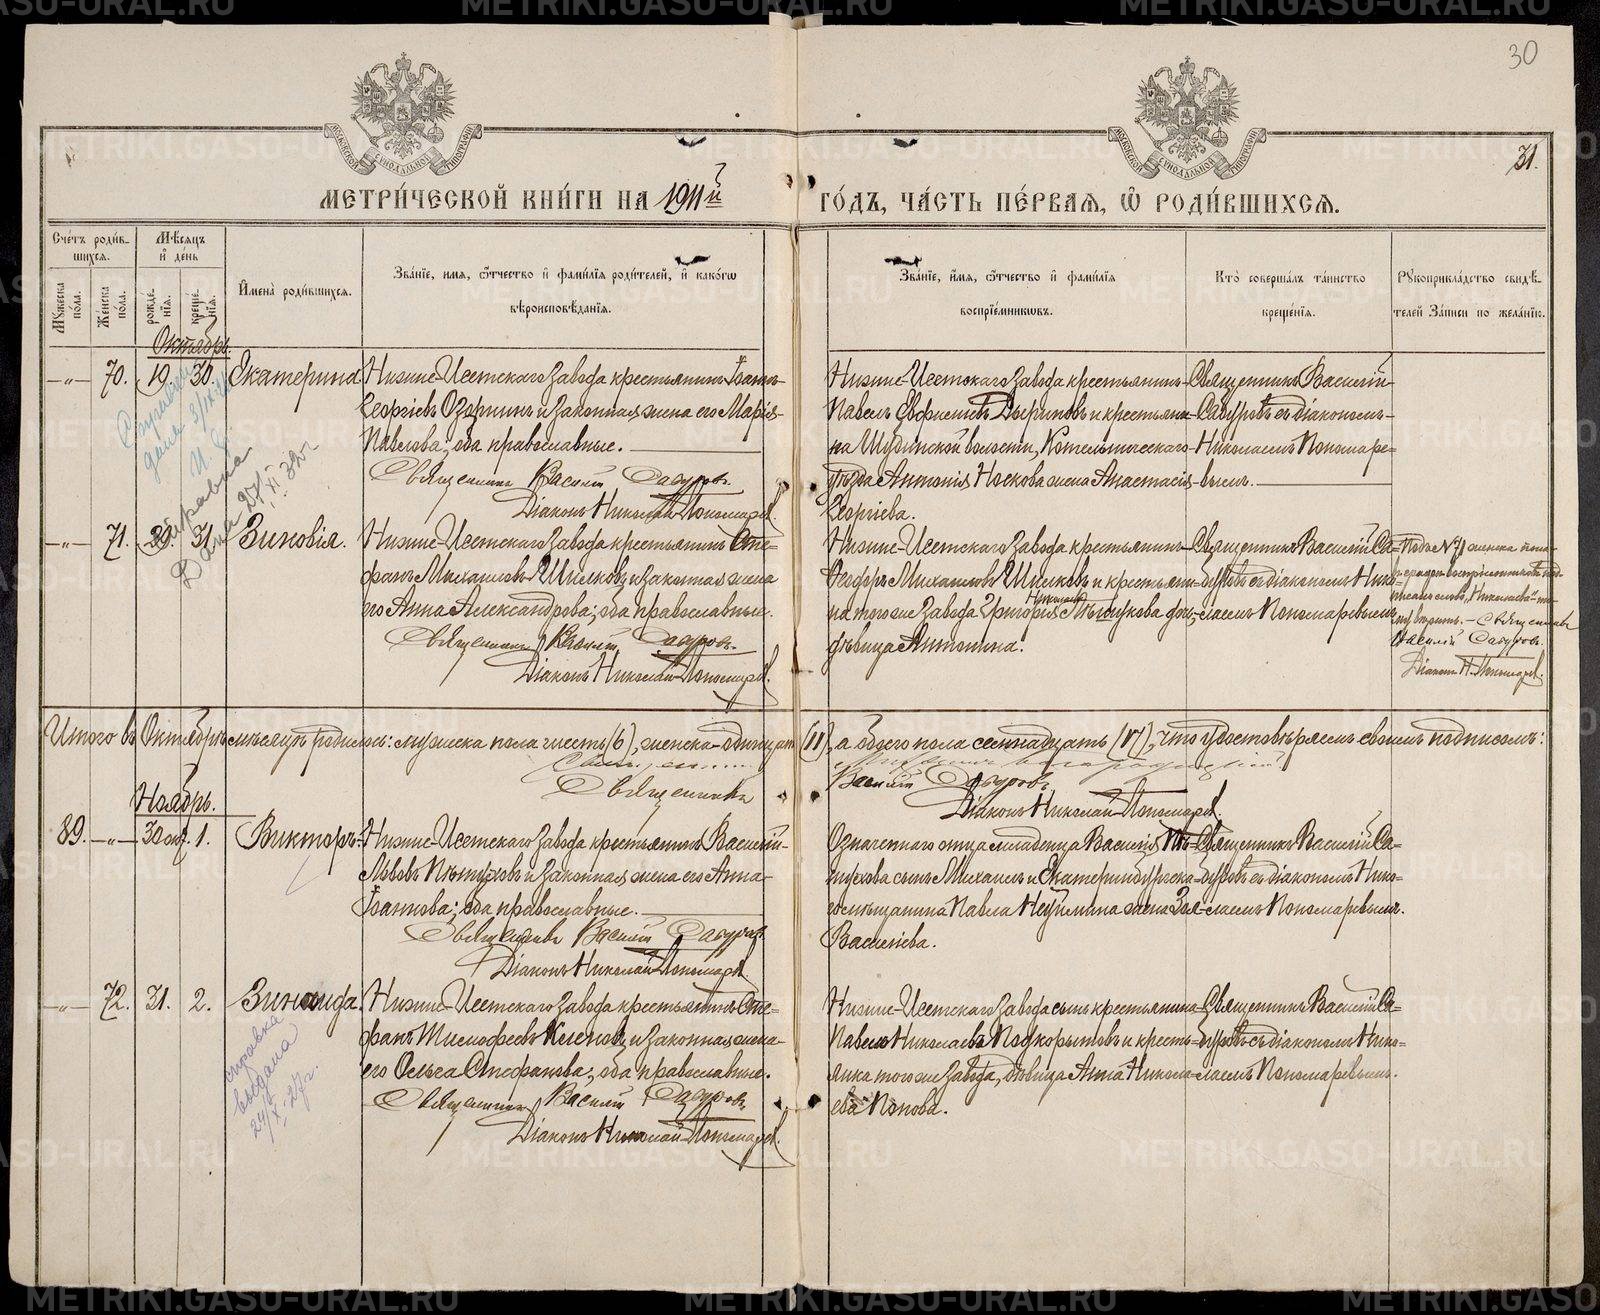 30
31.
МОСКОВСКОЙ СѴНОДАЛЬНОЙ ТИПОГРАФІИ
МОСКОВСКОЙ СѴНОДАЛЬНОЙ ТИПОГРАФІИ
МЕТРИ́ЧЕСКОЙ КНИ́ГИ НА 1911й ГО́ДЪ, ЧА́СТЬ ПЕ́РВАЯ, Ѽ РОДИ́ВШИХСЯ.
Сче́тъ роди́вшихся.
Мѣ́сяцъ и҆ де́нь
Мꙋ́жеска по́ла.
Же́нска по́ла.
рожде́нїѧ.
креще́нїѧ.
И҆мена̀ роди́вшихсѧ.
Зва́нїе, и҆мѧ, ѻ҆́тчество и҆ фамѝлїѧ роди́телей, и҆ како́гѡ вѣроисповѣ́данїѧ.
Зва́нїе, и҆́мѧ, ѻ҆́тчество и҆ фами́лїѧ воспрїе́мникѡвъ.
Кто̀ соверша́лъ та́инство креще́нїѧ.
Рꙋкоприкла́дство свидѣ́телей за́писи по жела́нїю.
Октябрь.
—"— 70. 19. 30. Екатерина
Нижне-Исетскаго Завода крестьянинъ Іоаннъ
Георгіевъ Озорнинъ и законная жена его Марія
Павлова; оба православные.
Священникъ Василій Сабуровъ.
Діаконъ Николай Пономарев.
Нижне-Исетскаго Завода крестьянинъ
Павелъ Евфиміевъ Дыриновъ и крестьянина
Котельническаго
уѣзда Антонія Носкова жена Анастасія
Георгіева.
Священникъ Василій
Сабуровъ съ діакономъ
Николаемъ Пономаревымъ.
Справка
Дана 27/XI 32 г
—"— 71. 29. 31. Зиновія.
Нижне-Исетскаго Завода крестьянинъ Стефанъ
Михаиловъ Шилковъ и законная жена
его Анна Александрова; оба православные.
Священникъ Василій Сабуровъ.
Діаконъ Николай Пономарев.
Нижне-Исетскаго Завода крестьянинъ
Феодоръ Михаиловъ Шилковъ и крестьянина
того же Завода Григорія Николаева дочь
дѣвица Антонина.
Священникъ Василій Сабуровъ
съ діакономъ Николаемъ
Пономаревымъ.
Подъ № 71 женска пола
"Николаева"
вѣрить. — Священникъ
Василій Сабуровъ.
Діаконъ Н. Пономарев.
Итого въ Октябрѣ мѣсяцѣ родилось: мужеска пола шесть (6), женска — одинадцать (11), а обоего пола семнадцать (17), что и удостовѣряемъ своимъ подписомъ:
Священникъ Василій Сабуровъ
Діаконъ Николай Пономарев.
Ноябрь.
89. —"— 30 окт. 1. Викторъ.
Нижне-Исетскаго Завода крестьянинъ Василій
Львовъ Пѣтуховъ и законная жена его Анна
Іоаннова; оба православные.
Священникъ Василій Сабуровъ
Діаконъ Николай Пономарев
Означеннаго отца младенца Василія Пѣтухова
сынъ Михаилъ и Екатеринбургскаго
мѣщанина Павла Неуймина жена Зоя
Василіева.
Священникъ Василій Сабуровъ
съ діакономъ Николаемъ
Пономаревымъ.
—"— 72. 31. 2. Зинаида.
Нижне-Исетскаго Завода крестьянинъ Стефанъ
Тимофеевъ и законная жена
его Ольга Стефанова; оба православные.
Священникъ Василій Сабуровъ
Діаконъ Николай Пономарев.
Нижне-Исетскаго Завода сынъ крестьянина
Павелъ Николаевъ Подкорытовъ и крестьянка
того же Завода, дѣвица Анна Николаева
Попова.
Священникъ Василій Сабуровъ
съ діакономъ Николаемъ
Пономаревымъ.
справка
выдана
24/X 27 г.
METRIKI.GASO-URAL.RU